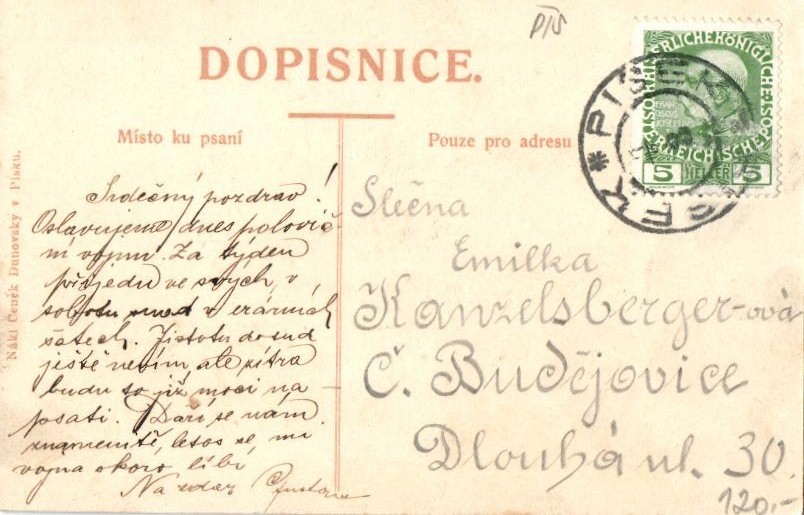 PÍS
DOPISNICE.
Místo ku psaní
Pouze pro adresu
Nákl. Čeněk Dunovský v Písku.
KAISERLICHE KÖNIGLICHE
OESTERREICHISCHE POST
5 HELLER 5
PISEK * PISEK
Srdečný pozdrav!
Oslavujeme dnes polovič-
ní vojnu. Za týden
přijedu ve svých, v
sobotu snad v erárních
šatech. Jistotu dosud
ještě nevím, ale zítra
budu to již moci na-
psati. Daří se nám
znamenitě, letos se mi
vojna skoro líbí.
Na zdar Gustav
Slečna
Emilka
Kanzelsberger-ová
Č. Budějovice
Dlouhá ul. 30.
120,-